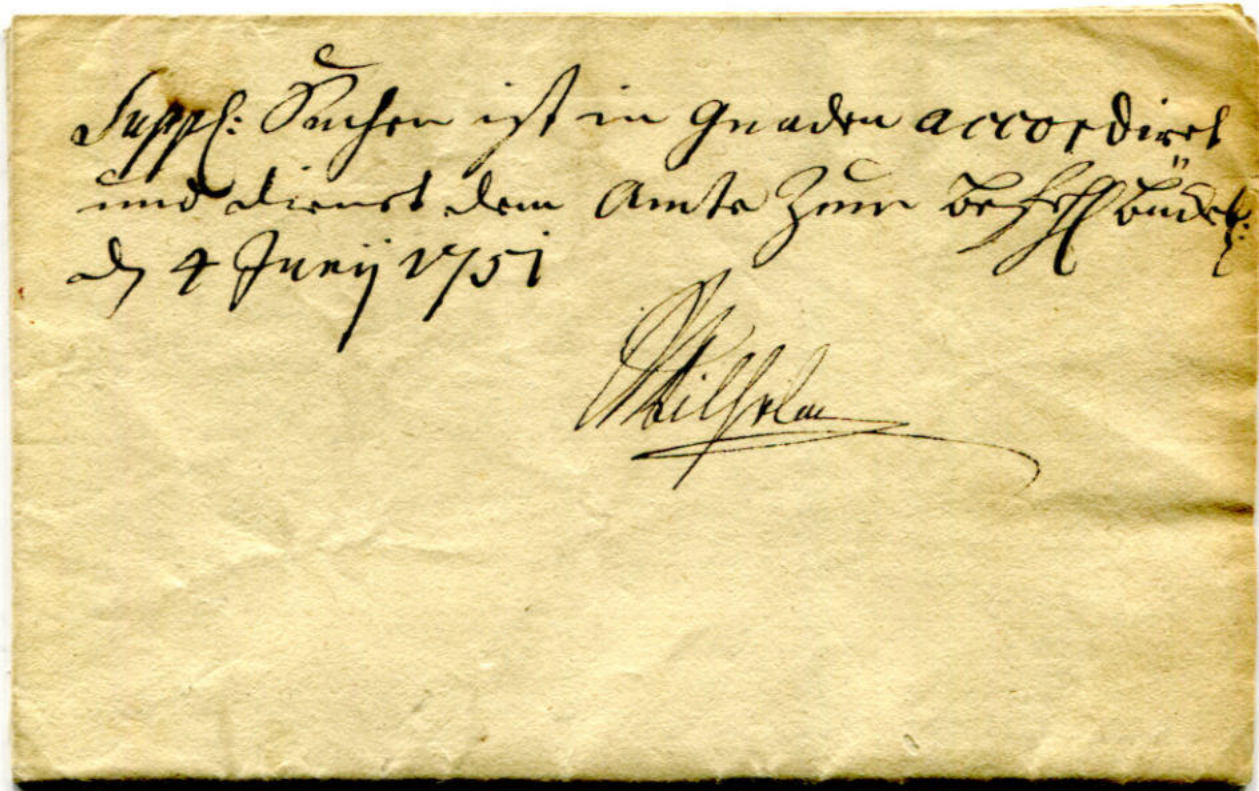 Suppl: Suchen ist in Gnaden accordiret
und dienet dem Amte zum Befehl Büdeb:
d 4 Junij 1751
Wilhelm